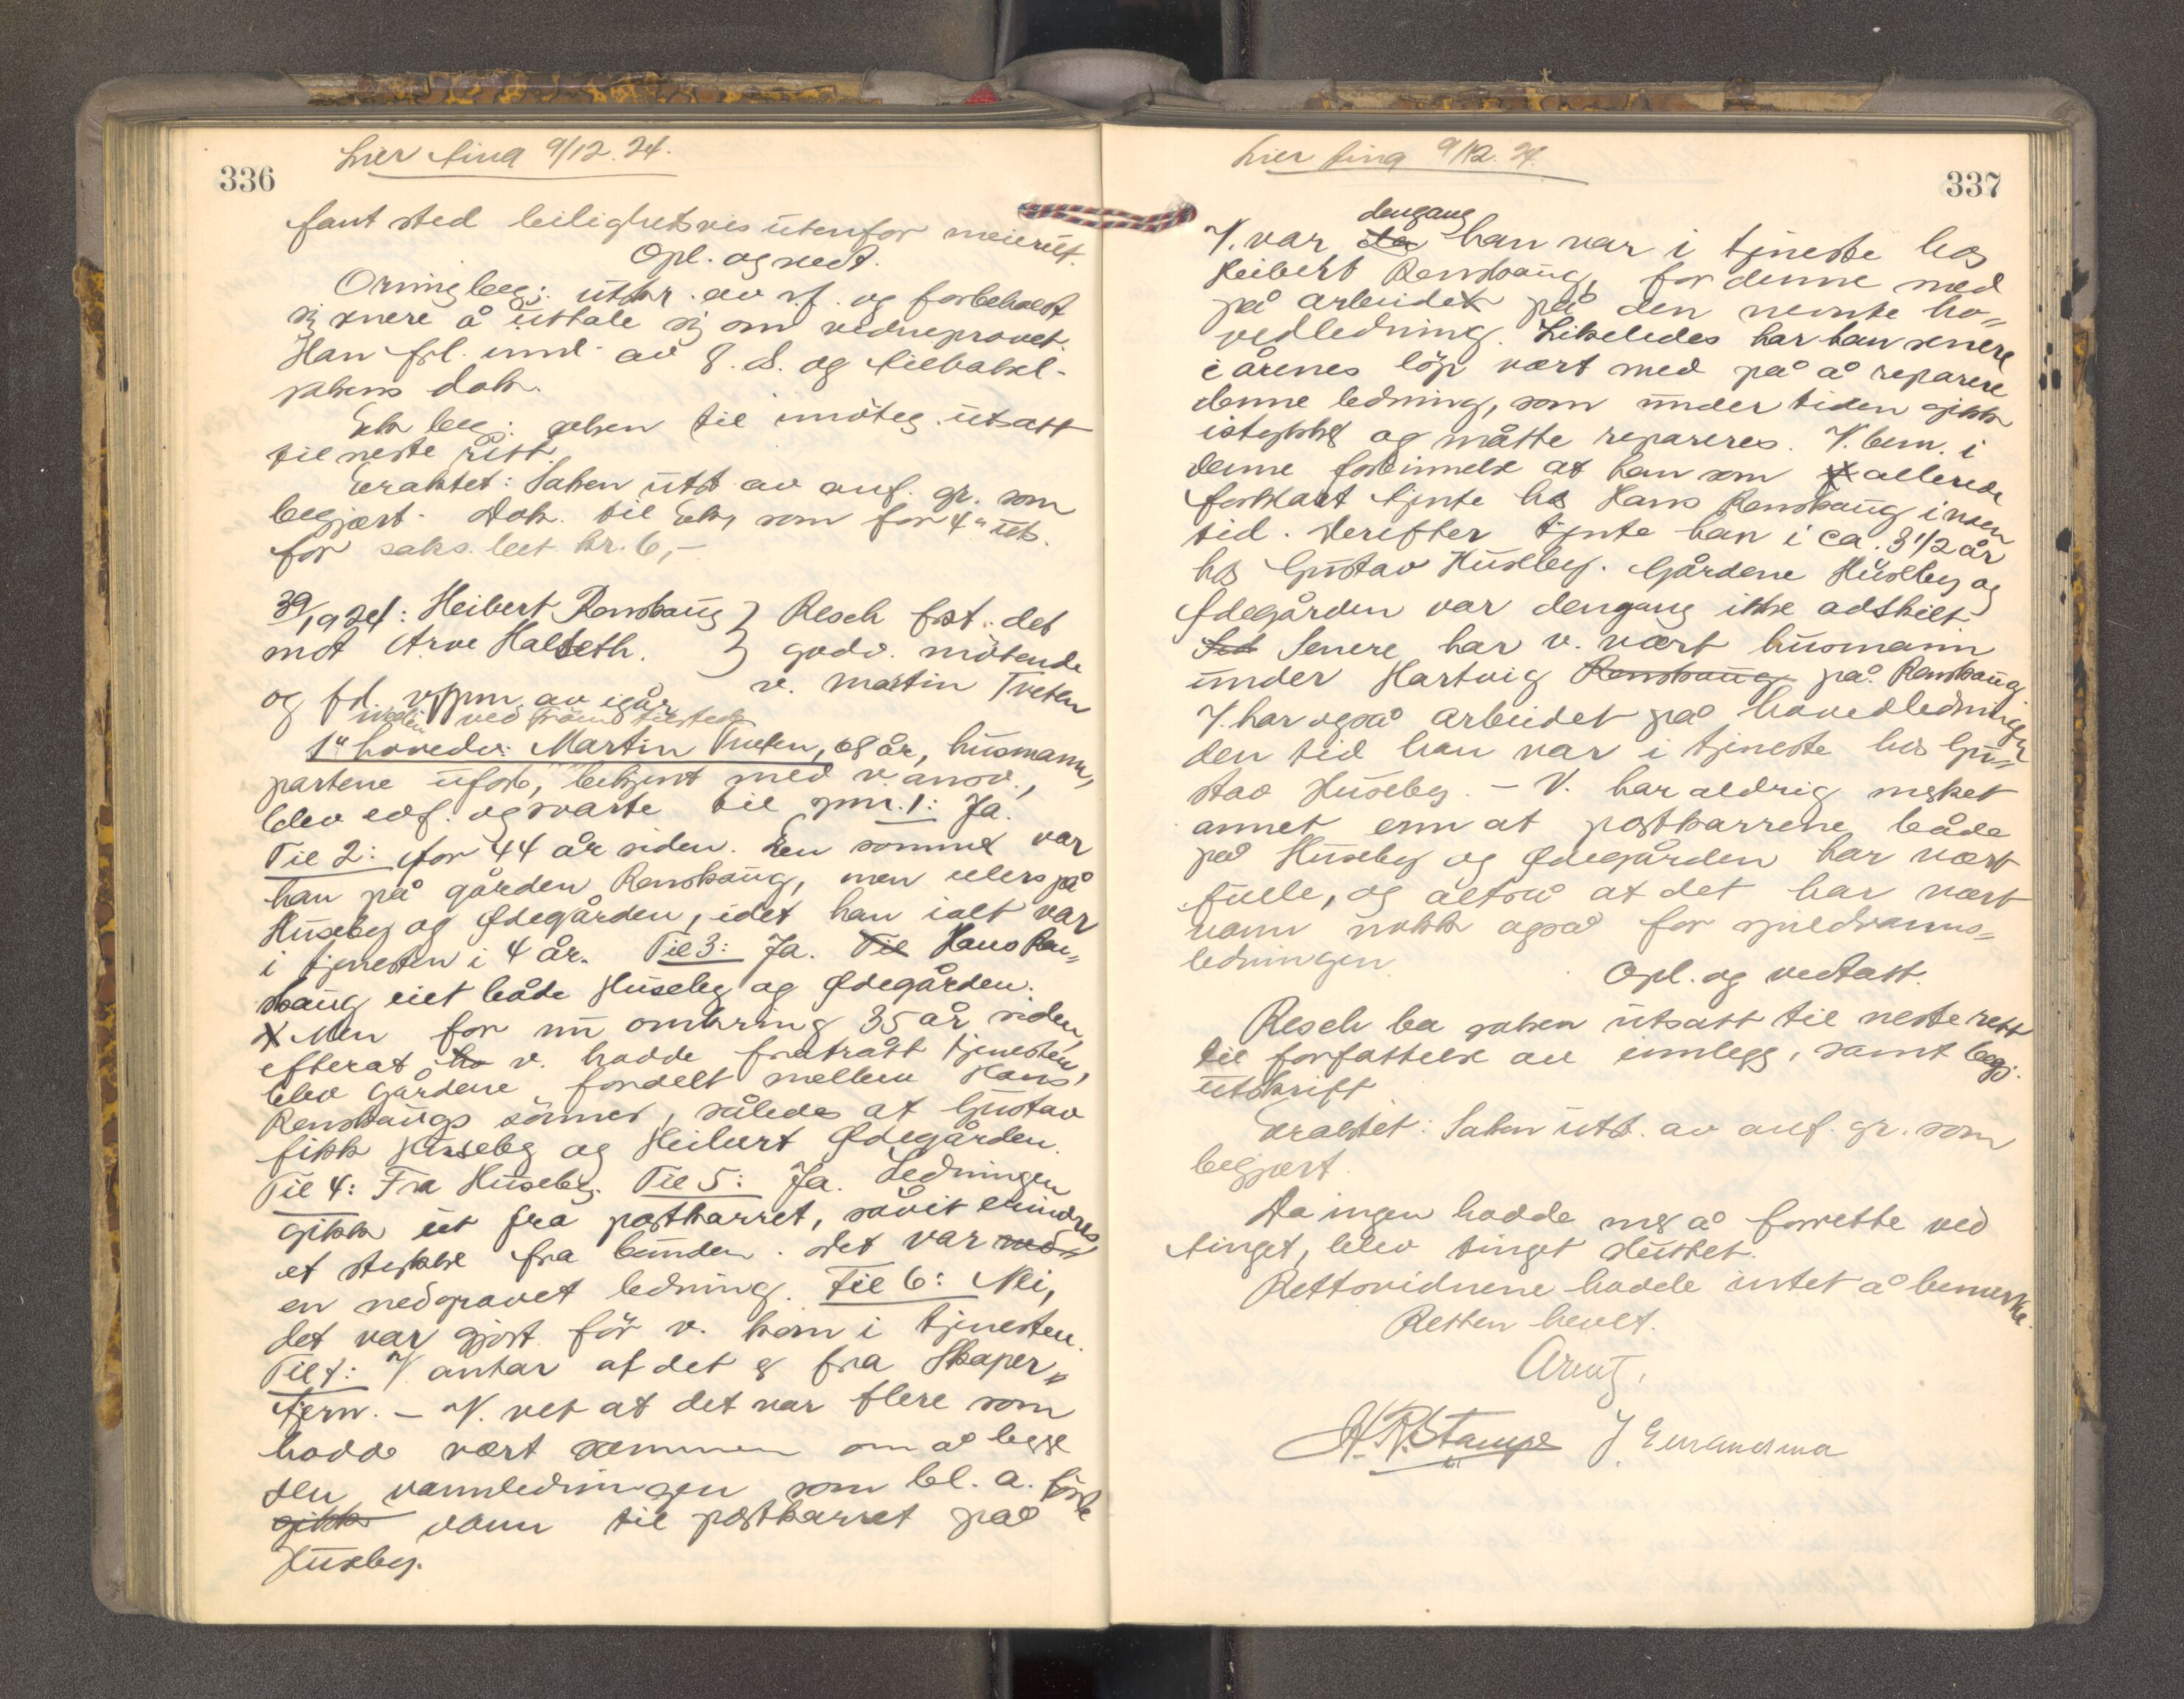 336
Lier ting 9/12. 24.
fant sted leilighetsvis utenfor meieriet.
Opl. og vedt.
Orning beg: utskr. av rf. og forbeholdt
sig senere å uttale sig om vidneprovet.
Han frl. innl. av 8. ds. og tilbakel-
saken til imøteg. utsatt
til neste rett.
Eraktet: Saken utst av anf. gr. som
begjært. Dok. til Ek, som for 4" uts.
for saks. bet. kr. 6,-
39/1924: Heibert Renskaug } Resch frst. det
mot Arve Halseth. } godv. møtende
v. Martin Tveten
og fd. vspm. av igår
1" hovedv: Martin Tveten, 68 år, husmann,
partene ufor., bekjent med v. ansv.,
blev edf. og svarte til spm. 1: Ja.
Til 2: for 44 år siden. En sommer var
han på gården Renskaug, men ellers på
Huseby og Ødegården, idet han ialt var
i tjenesten i 4 år. Til 3: Ja. Til Hans Ren-
skaug eiet både Huseby og Ødegården.
Men for nu omkring 35 år siden,
efterat ho v. hadde fratrått tjenesten,
blev gårdene fordelt mellem Hans
Renskaugs sønner, således at Gustav
fikk Huseby og Heibert Ødegården.
Til 4: Fra Huseby. Til 5: Ja. Ledningen
gikk ut fra postkarret, såvit erindres
et stykke fra bunden. Det var
en nedgravet ledning. Til 6: Nei,
det var gjort før v. kom i tjenesten.
Til 7: V. antar at det er fra Skaper-
tjern. – V. vet at det var flere som
hadde vært sammen om at legge
den vannledningen som bl. a. førte
gikk vann til postkarret på
Huseby.
337
Lier ting 9/12. 24.
dengang
V. var da han var i tjeneste hos
Heibert Renskaug, for denne med
på arbeidet på den nevnte ho-
vedledning. Likeledes har han senere
i årenes løp vært med på å reparere
denne ledning, som under tiden gikk
istykker og måtte repareres. V. bem. i
denne forbinnelse at han som allerede
forklart tjente hos Hans Renskaug i noen
tid. Derefter tjente han i ca. 3 1/2 år
hos Gustav Huseby. Gårdene Huseby og
Ødegården var dengang ikke adskilt
Senere har v. vært husmann
under Hartvig Renskaug på Renskaug
V. har også arbeidet på hovedledningen
den tid han var i tjeneste hos Gu-
stav Huseby. – V. har aldrig merket
annet enn at postkarrene både
på Huseby og Ødegården har vært
fulle, og altså at det har vært
vann nokk også for spildvanns-
ledningen
Opl. og vedtatt.
Resch ba saken utsatt til neste rett
til forfattelse av innlegg, samt begj.
utskrift
Eraktet: Saken utst. av anf. gr. som
begjært.
Da ingen hadde mer å forrette ved
tinget, blev tinget sluttet.
Rettsvidnene hadde intet å bemerke.
Retten hevet.